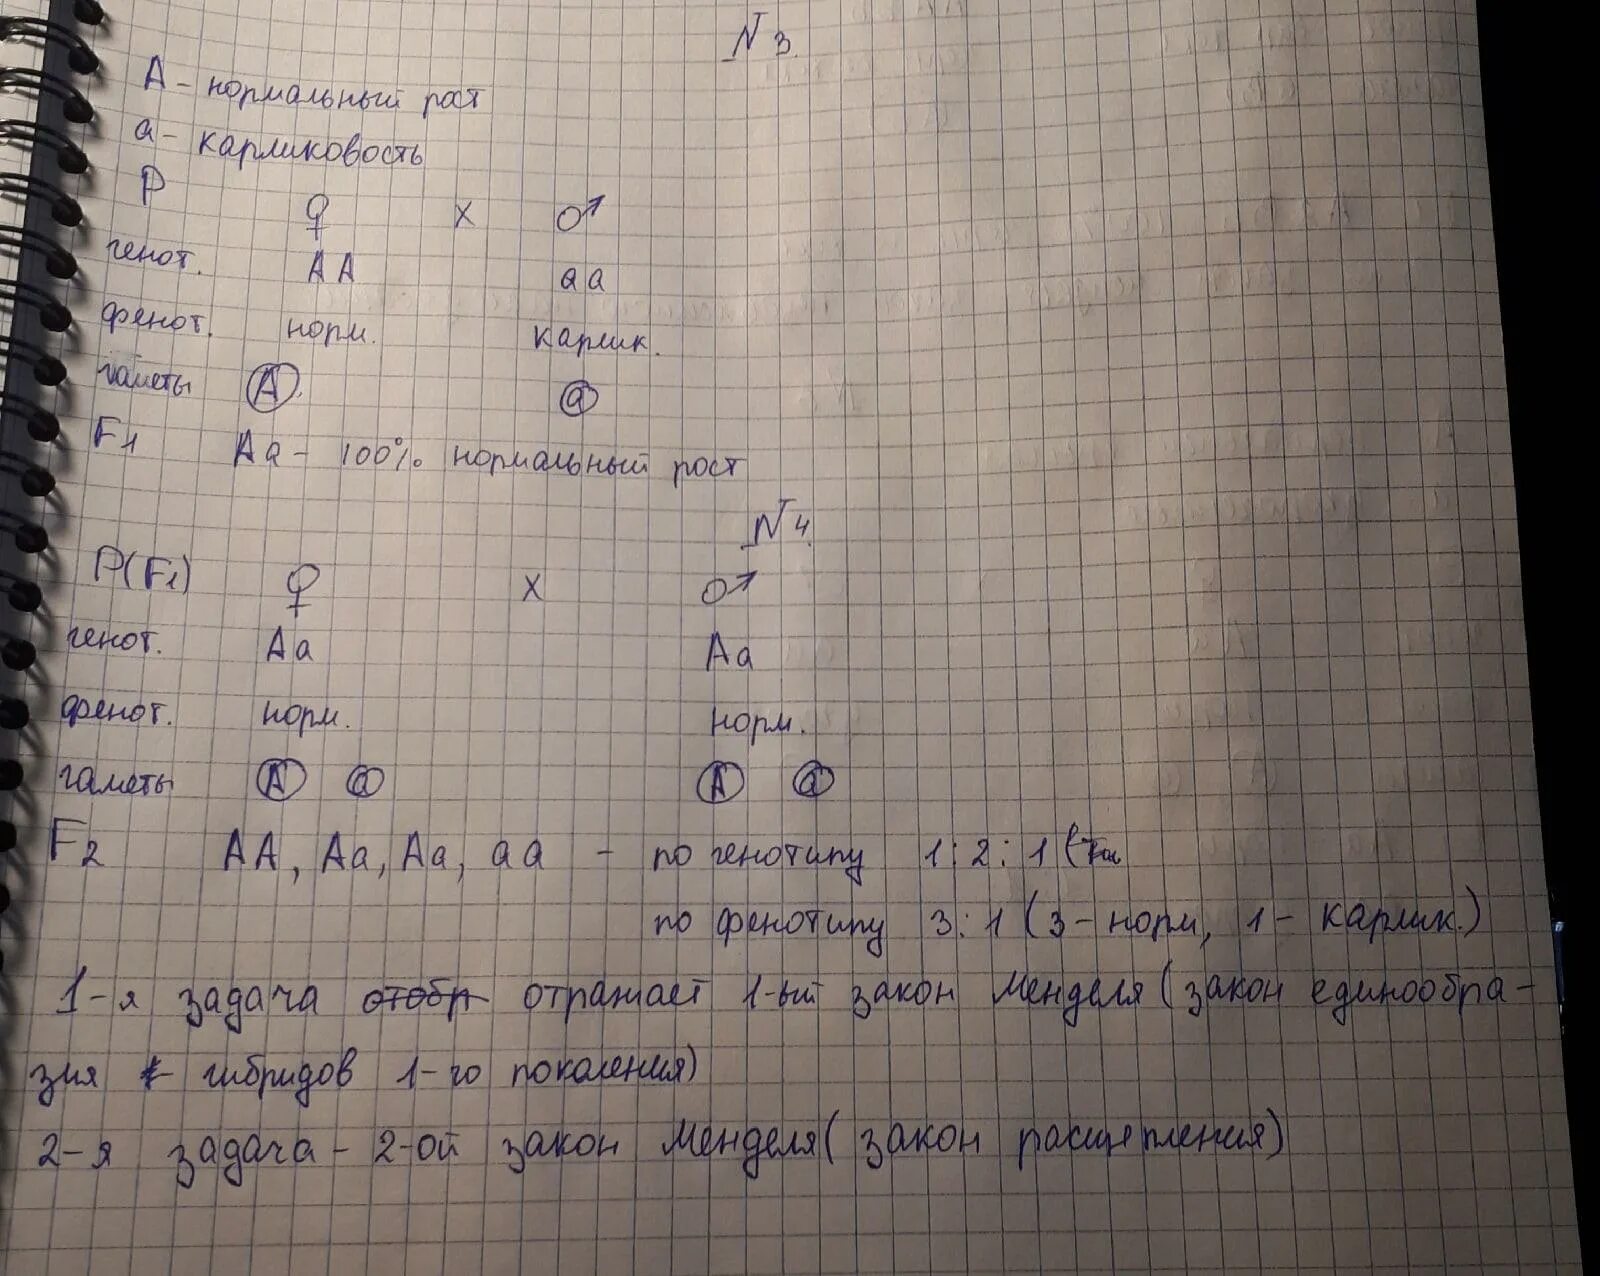 N3.
А – нормальный рост
а – карликовость
Р
♀ х ♂
генот. АА аа
фенот. норм. карлик.
гаметы А а
F1 Аа – 100% нормальный рост
N4.
Р(F1) ♀ х ♂
генот. Аа Аа
фенот. норм. норм.
гаметы А а А а
F2 АА, Аа, Аа, аа – по генотипу 1:2:1 (
по фенотипу 3:1 (3 – норм, 1 – карлик.)
1-я задача отобр отражает 1-ый закон Менделя (закон единообра-
зия гибридов 1-го поколения)
2-я задача – 2-ой закон Менделя (закон расщепления)